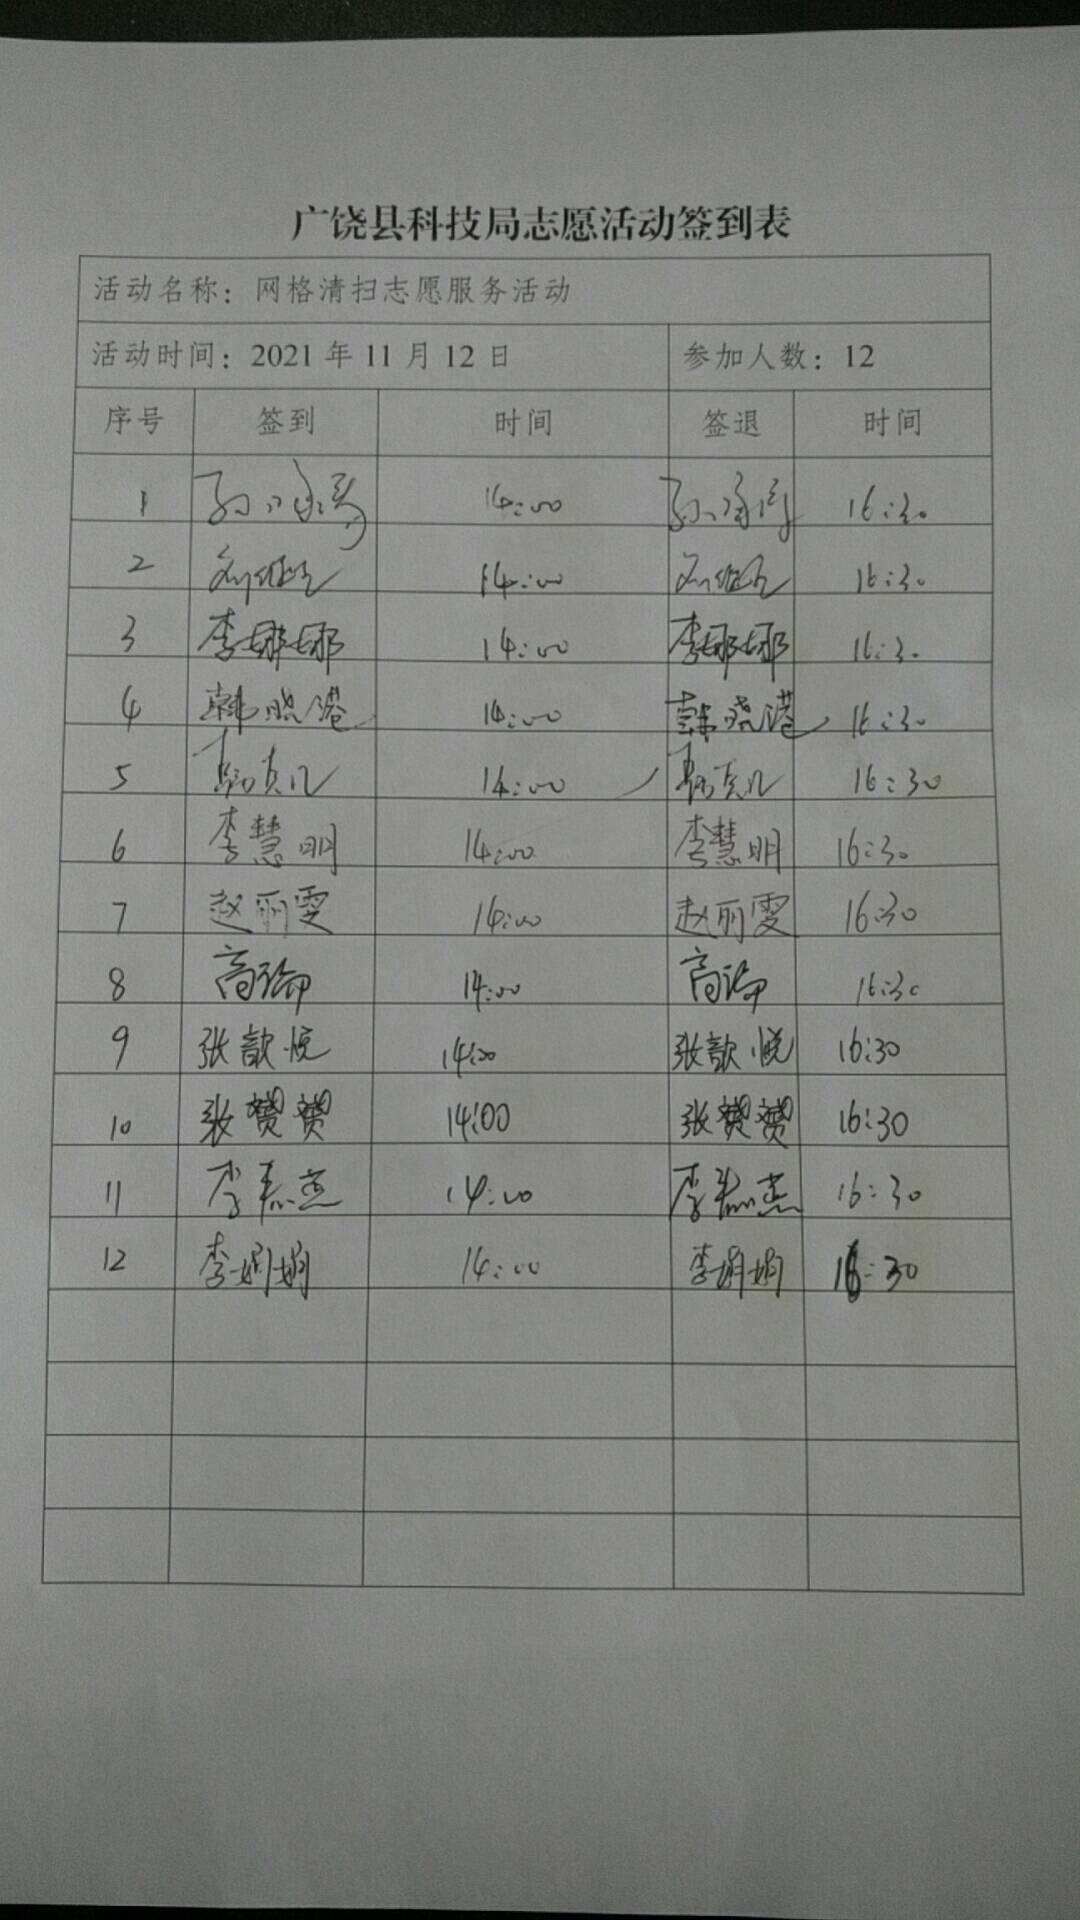 广饶县科技局志愿活动签到表
活动名称：网格清扫志愿服务活动
活动时间：2021 年 11 月 12 日 参加人数：12
序号 签到 时间 签退 时间
1 14:00 16:30
2 14:00 16:30
3 李娜娜 14:00 李娜娜 16:30
4 韩晓港 14:00 韩晓港 16:30
5 14:00 16:30
6 李慧明 14:00 李慧明 16:30
7 赵丽雯 14:00 赵丽雯 16:30
8 高瑜 14:00 高瑜 16:30
9 张歆悦 14:00 张歆悦 16:30
10 张赟赟 14:00 张赟赟 16:30
11 14:00 16:30
12 李娟娟 14:00 李娟娟 16:30